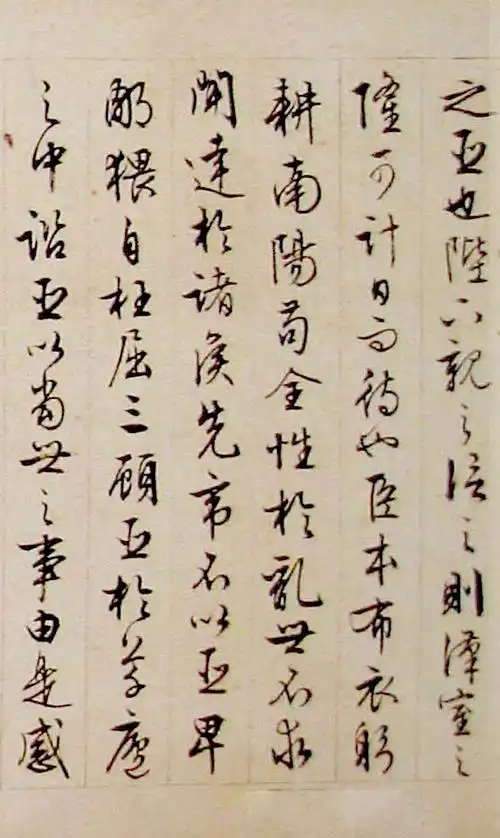 之臣也陛下親之信之則漢室之
隆可計日而待也臣本布衣躬
耕南陽苟全性於亂世不求
聞達於諸侯先帝不以臣卑
鄙猥自枉屈三顧臣於草廬
之中諮臣以當世之事由是感